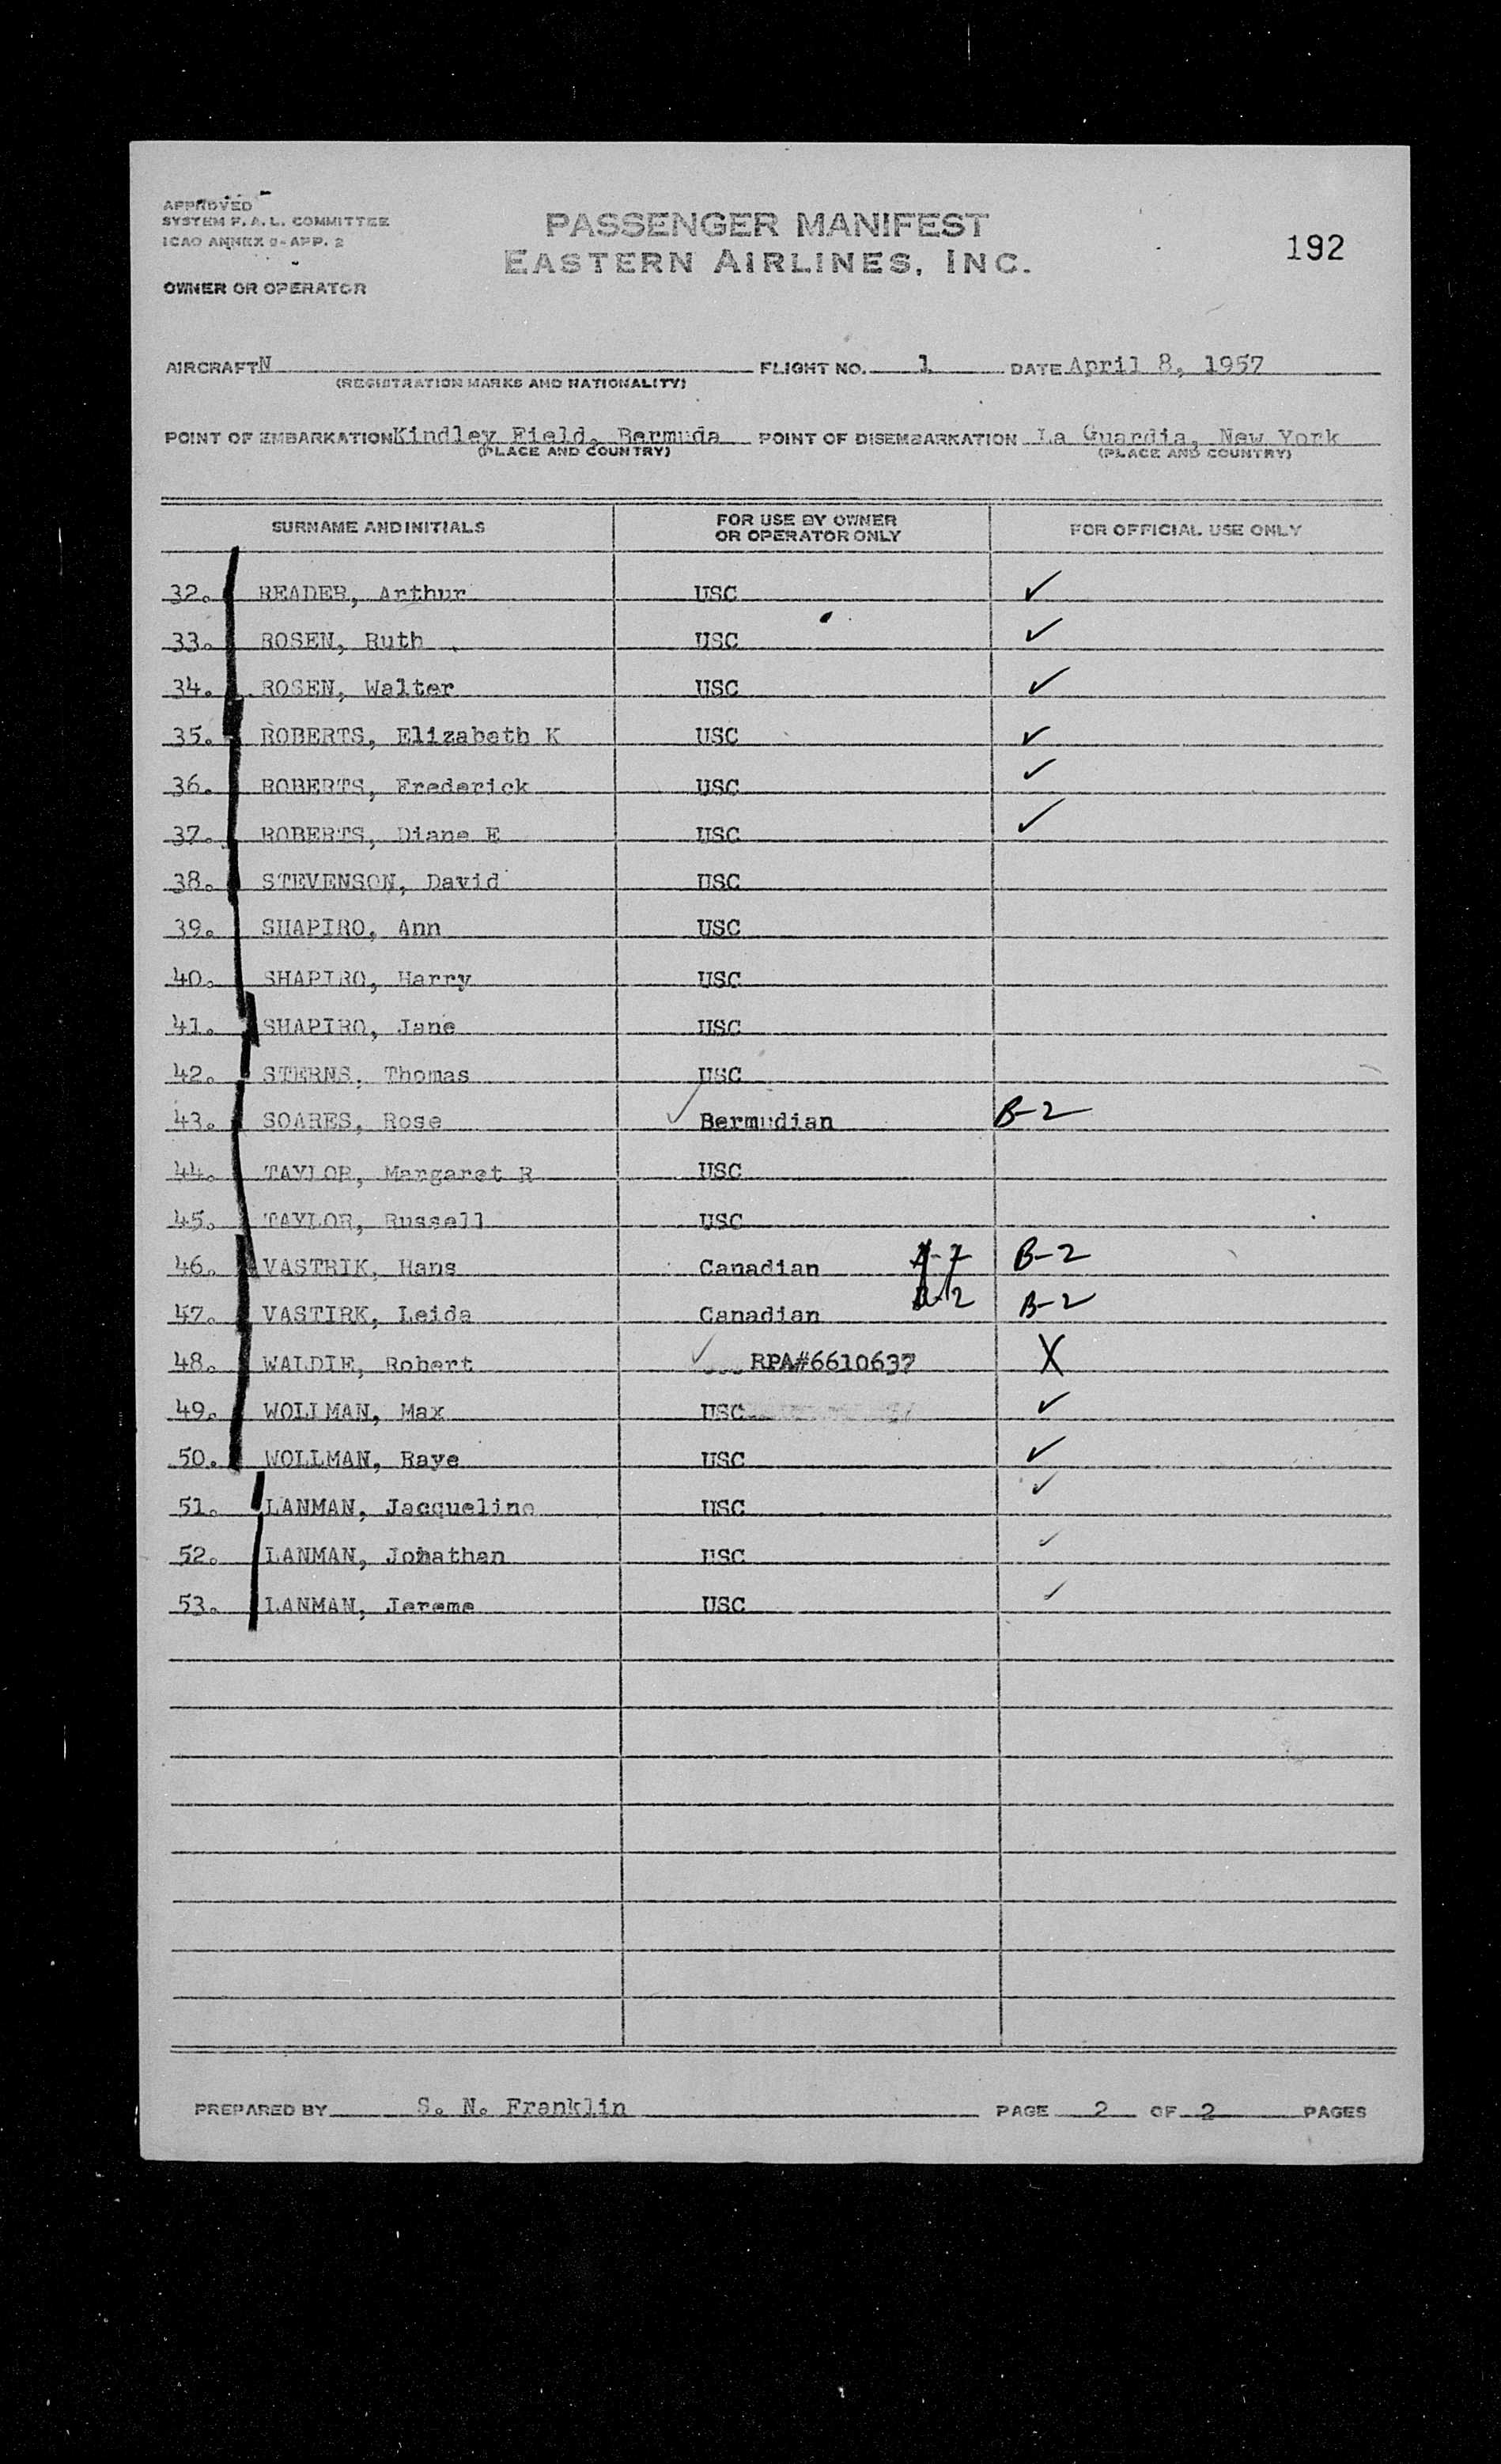 APPROVED
SYSTEM F. A. L. COMMITTEE
ICAO ANNEX 9-APP. 2
PASSENGER MANIFEST
EASTERN AIRLINES, INC.
192
OWNER OR OPERATOR
AIRCRAFT N FLIGHT NO. 1 DATE April 8, 1957
(REGISTRATION MARKS AND NATIONALITY)
POINT OF EMBARKATION Kindley Field, Bermuda POINT OF DISEMBARKATION La Guardia, New York
(PLACE AND COUNTRY) (PLACE AND COUNTRY)
SURNAME AND INITIALS FOR USE BY OWNER OR OPERATOR ONLY FOR OFFICIAL USE ONLY
32. READER, Arthur USC ✓
33. ROSEN, Ruth USC ✓
34. ROSEN, Walter USC ✓
35. ROBERTS, Elizabeth K USC ✓
36. ROBERTS, Frederick USC ✓
37. ROBERTS, Diane E USC ✓
38. STEVENSON, David USC
39. SHAPIRO, Ann USC
40. SHAPIRO, Harry USC
41. SHAPIRO, Jane USC
42. STERNS, Thomas USC
43. SOARES, Rose ✓ Bermudian B-2
44. TAYLOR, Margaret R USC
45. TAYLOR, Russell USC
46. VASTRIK, Hans Canadian B-2
47. VASTIRK, Leida Canadian B-2 B-2
48. WALDIE, Robert ✓ RPA#6610637 X
49. WOLLMAN, Max USC ✓
50. WOLLMAN, Raye USC ✓
51. LANMAN, Jacqueline USC ✓
52. LANMAN, Jonathan USC ✓
53. LANMAN, Jereme USC ✓
PREPARED BY S. N. Franklin PAGE 2 OF 2 PAGES